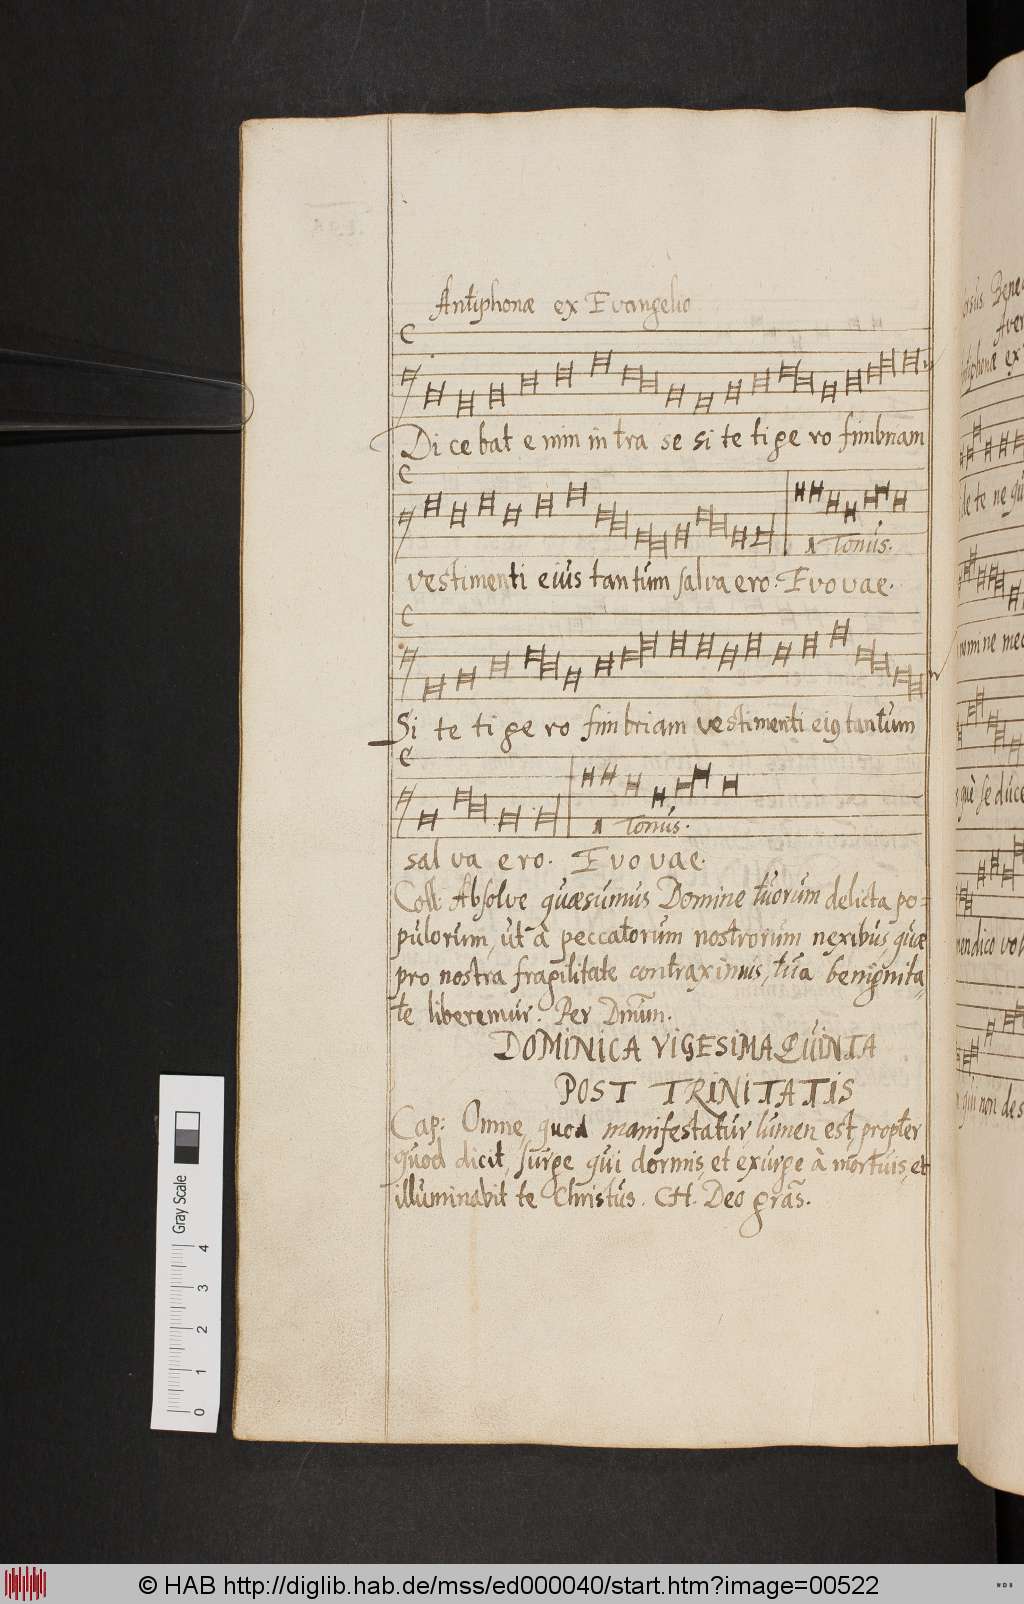 Antiphonæ ex Evangelio
Di ce bat e nim in tra se si te ti ge ro fimbriam
1 Tonus.
vestimenti eius tantum salva ero. Evovae.
Si te ti ge ro fim briam vestimenti ei9 tantum
1 Tonus.
sal va ero. Evovae.
Coll: Absolve quæsumus Domine tuorum delicta po=
pulorum, ut à peccatorum nostrorum nexibus, quæ
pro nostra fragilitate contraximus, tua benignita=
te liberemur. Per Dmum.
DOMINICA VIGESIMA QUINTA
POST TRINITATIS
Cap: Omne, quod manifestatur, lumen est, propter
quod dicit, surge qui dormis, et exurge à mortuis, et
illuminabit te Christus. CH. Deo gras.
Gray Scale
0 1 2 3 4
© HAB http://diglib.hab.de/mss/ed000040/start.htm?image=00522